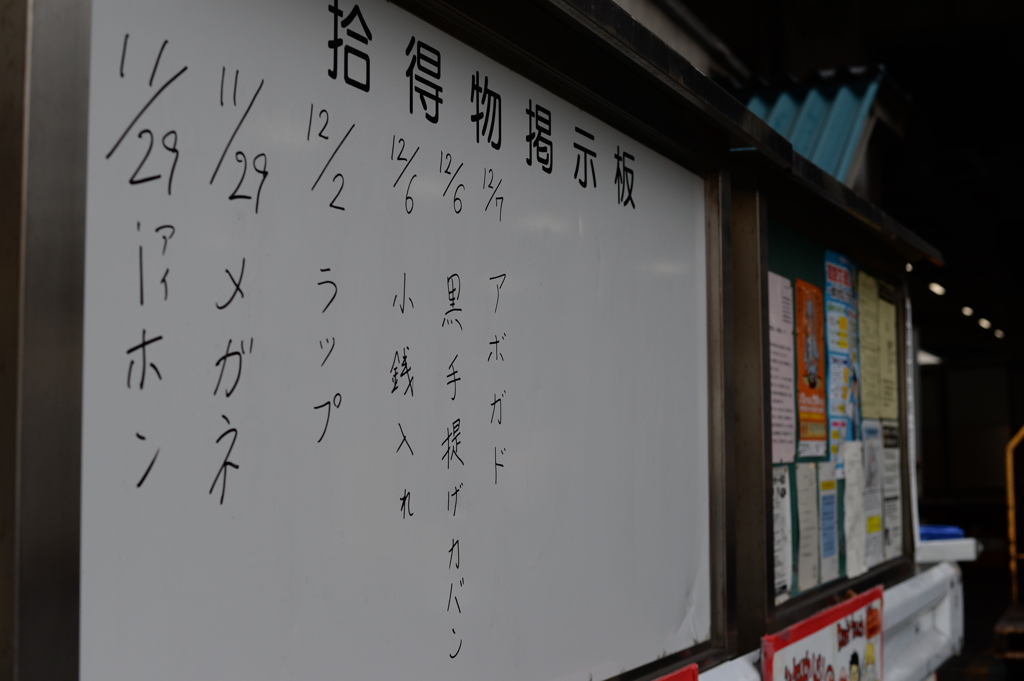 拾得物掲示板
11/29 iアイホン
11/29 メガネ
12/2 ラップ
12/6 小銭入れ
12/6 黒手提げカバン
12/7 アボガド